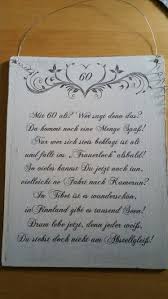 60
Mit 60 alt? Wer sagt denn das?
Da kommt noch eine Menge Spaß!
Nur wer sich stets beklagt ist alt
und fällt ins „Trauerloch“ alsbald!
So vieles kannst Du jetzt noch tun,
vielleicht ne Fahrt nach Kamerun?
In Tibet ist es wunderschön,
in Finnland gibt es tausend Seen!
Drum lebe jetzt, denn jeder weiß,
Du stehst doch nicht am Abstellgleis!